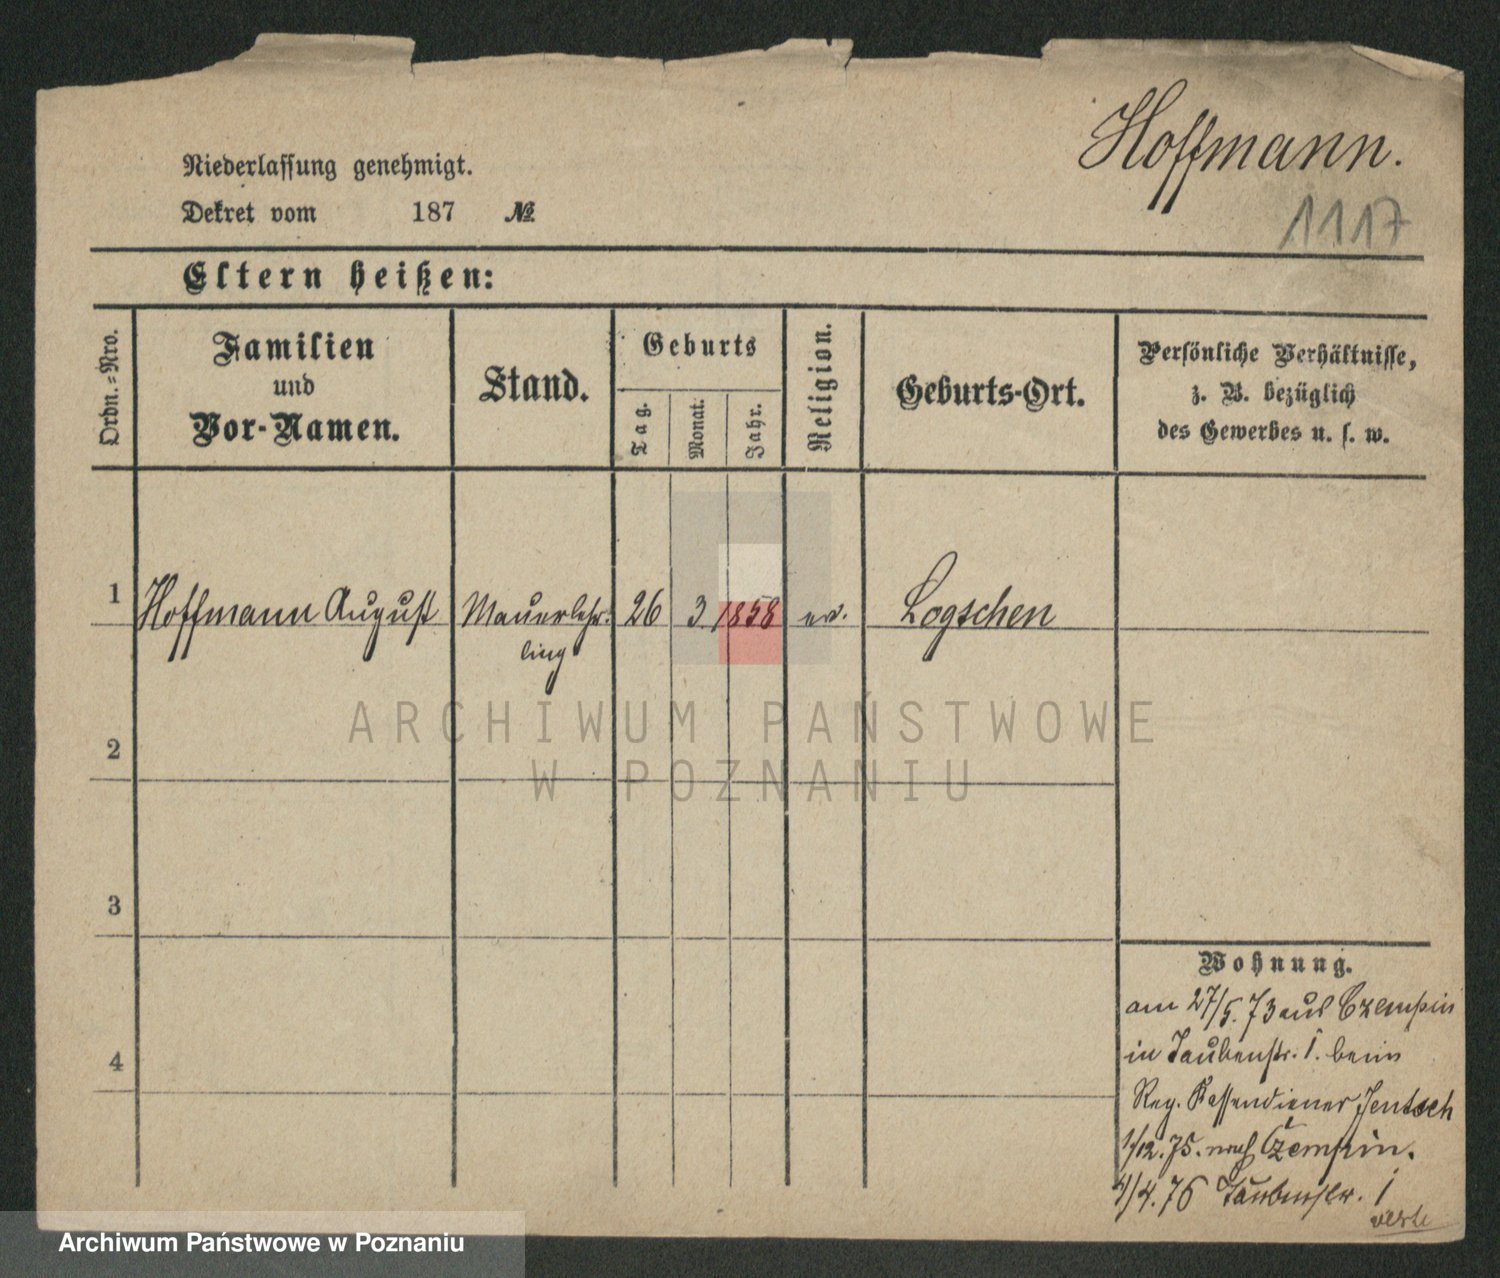 Hoffmann.
1117
Niederlassung genehmigt.
Dekret vom 187 №
Eltern heißen:
Ordn.=Nro.
Familien
und
Vor-Namen.
Stand.
Geburts
Tag.
Monat.
Jahr.
Religion.
Geburts-Ort.
Persönliche Verhältnisse,
z. B. bezüglich
des Gewerbes u. s. w.
1 Hoffmann August Mauerlehr- 26 3. 1858 ev. Logschen
ling
2
3
4
Wohnung.
am 27/5. 73 aus Czempin
in Taubenstr. 1. beim
Reg. Kassendiener Jentsch
1/12. 75. nach Czempin.
4/4. 76 Taubenstr. 1
verte
ARCHIWUM PAŃSTWOWE
W POZNANIU
Archiwum Państwowe w Poznaniu